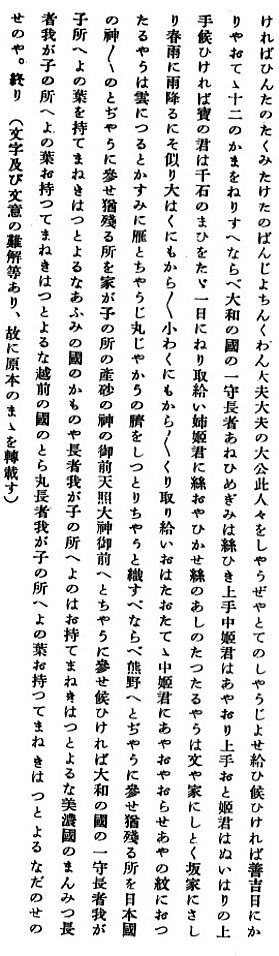 ければひんたのたくみたけたのばんじよちんくわん大夫大夫の大公此人々をしやうぜやとてのしやうじよせ給ひ候ひければ善吉日にか
りやおてゝ十二のかまをねりすへならべ大和の國の一守長者あねひめぎみは絲ひき上手中姬君はあやおり上手おと姬君はぬいはりの上
手候ひければ寶の君は千石のまひをたゞ一日にねり取給い姉姬君に絲おやひかせ絲のあしのたつたるやうは文や家にしとく坂家にさし
り春雨に雨降るにそ似り大はくにもから〱小わくにもから〱くり取り給いおはたおたてゝ中姬君にあやおやおらせあやの紋におつ
たるやうは雲につるとかすみに雁とちやうじ丸じやかうの臍をしつとりちやうと織すべならべ熊野へとぢやうに參せ猶殘る所を日本國
の神〱のとぢやうに參せ猶殘る所を家が子の所の產砂の神の御前天照大神御前へとちやうに參せ候ひければ大和の國の一守長者我が
子所へよの葉を持てまねきはつとよるなあふみの國のかものや長者我が子の所へよのはお持てまねきはつとよるな美濃國のまんみつ長
者我が子の所へよの葉お持つてまねきはつとよるな越前の國のとら丸長者我が子の所へよの葉お持つてまねきはつとよるなだのせの
せのや。終り（文字及び文意の難解等あり、故に原本のまゝを轉載す）